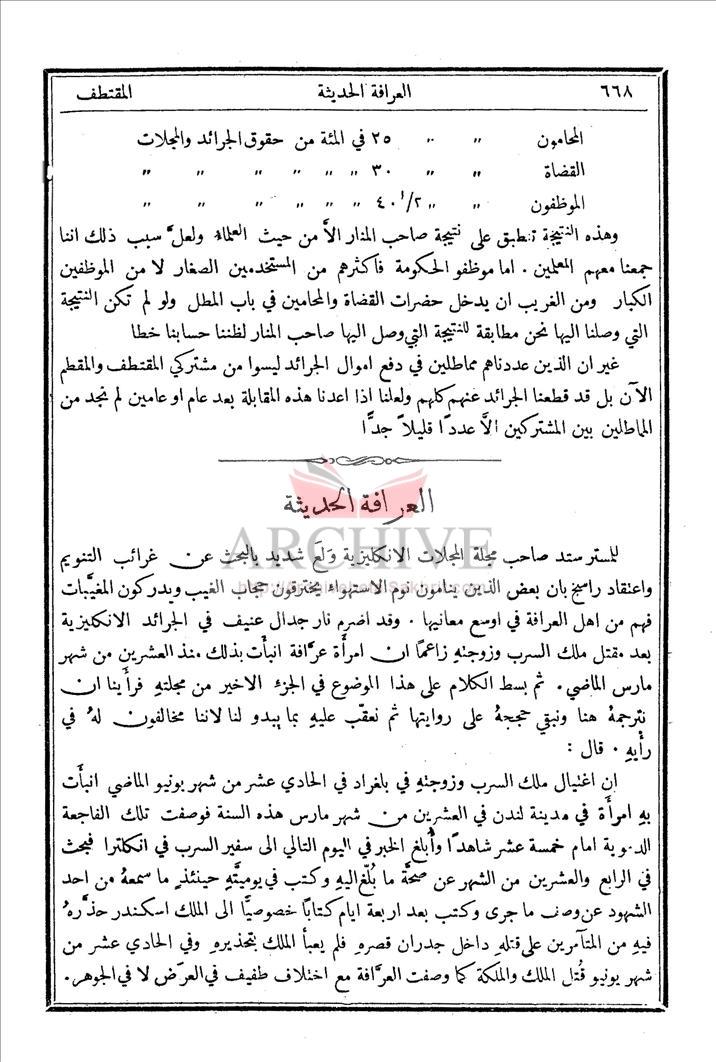 ٦٦٨ العرافة الحديثة المقتطف
المحامون „ „ ٢٥ في المئة من حقوق الجرائد والمجلات
القضاة „ „ ٣٠ „ „ „ „ „
الموظفون „ „ ٤٠١/٢ „ „ „ „ „
وهذه النتيجة تنطبق على نتيجة صاحب المنار الاَّ من حيث العلماء ولعلَّ سبب ذلك اننا
جمعنا معهم المعلمين . اما موظفو الحكومة فاكثرهم من المستخدمين الصغار لا من الموظفين
الكبار ومن الغريب ان يدخل حضرات القضاة والمحامين في باب المطل ولو لم تكن النتيجة
التي وصلنا اليها نحن مطابقة للنتيجة التي وصل اليها صاحب المنار لظننا حسابنا خطا
غير ان الذين عددناهم مماطلين في دفع اموال الجرائد ليسوا من مشتركي المقتطف والمقطم
الآن بل قد قطعنا الجرائد عنهم كلهم ولعلنا اذا اعدنا هذه المقابلة بعد عام او عامين لم نجد من
الماطلين بين المشتركين الاَّ عددًا قليلاً جدًّا
العرافة الحديثة
ARCHIVE
للمستر ستد صاحب مجلة المجلات الانكليزية وَلَع شديد بالبحث عن غرائب التنويم
واعتقاد راسخ بان بعض الذين ينامون نوم الاستهواء يخترقون حجاب الغيب ويدركون المغيَّبات
فهم من اهل العرافة في اوسع معانيها . وقد اضرم نار جدال عنيف في الجرائد الانكليزية
بعد مقتل ملك السرب وزوجتهِ زاعمًا ان امرأة عرَّافة انبأت بذلك منذ العشرين من شهر
مارس الماضي . ثم بسط الكلام على هذا الموضوع في الجزء الاخير من مجلتهِ فرأينا ان
نترجمهُ هنا ونبقي حججهُ على روايتها ثم نعقّب عليهِ بما يبدو لنا لاننا مخالفون لهُ في
رأيهِ . قال :
ان اغتيال ملك السرب وزوجتهِ في بلغراد في الحادي عشر من شهر يونيو الماضي انبأت
بهِ امرأة في مدينة لندن في العشرين من شهر مارس هذه السنة فوصفت تلك الفاجعة
الدموية امام خمسة عشر شاهدًا وأُبلغ الخبر في اليوم التالي الى سفير السرب في انكلترا فبحث
في الرابع والعشرين من الشهر عن صحَّة ما بُلّغ اليهِ وكتب في يوميَّتهِ حينئذٍ ما سمعهُ من احد
الشهود عن وصف ما جرى وكتب بعد اربعة ايام كتابًا خصوصيًّا الى الملك اسكندر حذَّرهُ
فيهِ من المتآمرين على قتلهِ داخل جدران قصرهِ فلم يعبأ الملك بتحذيرهِ وفي الحادي عشر من
شهر يونيو قُتل الملك والملكة كما وصفت العرَّافة مع اختلاف طفيف في العرَض لا في الجوهر .